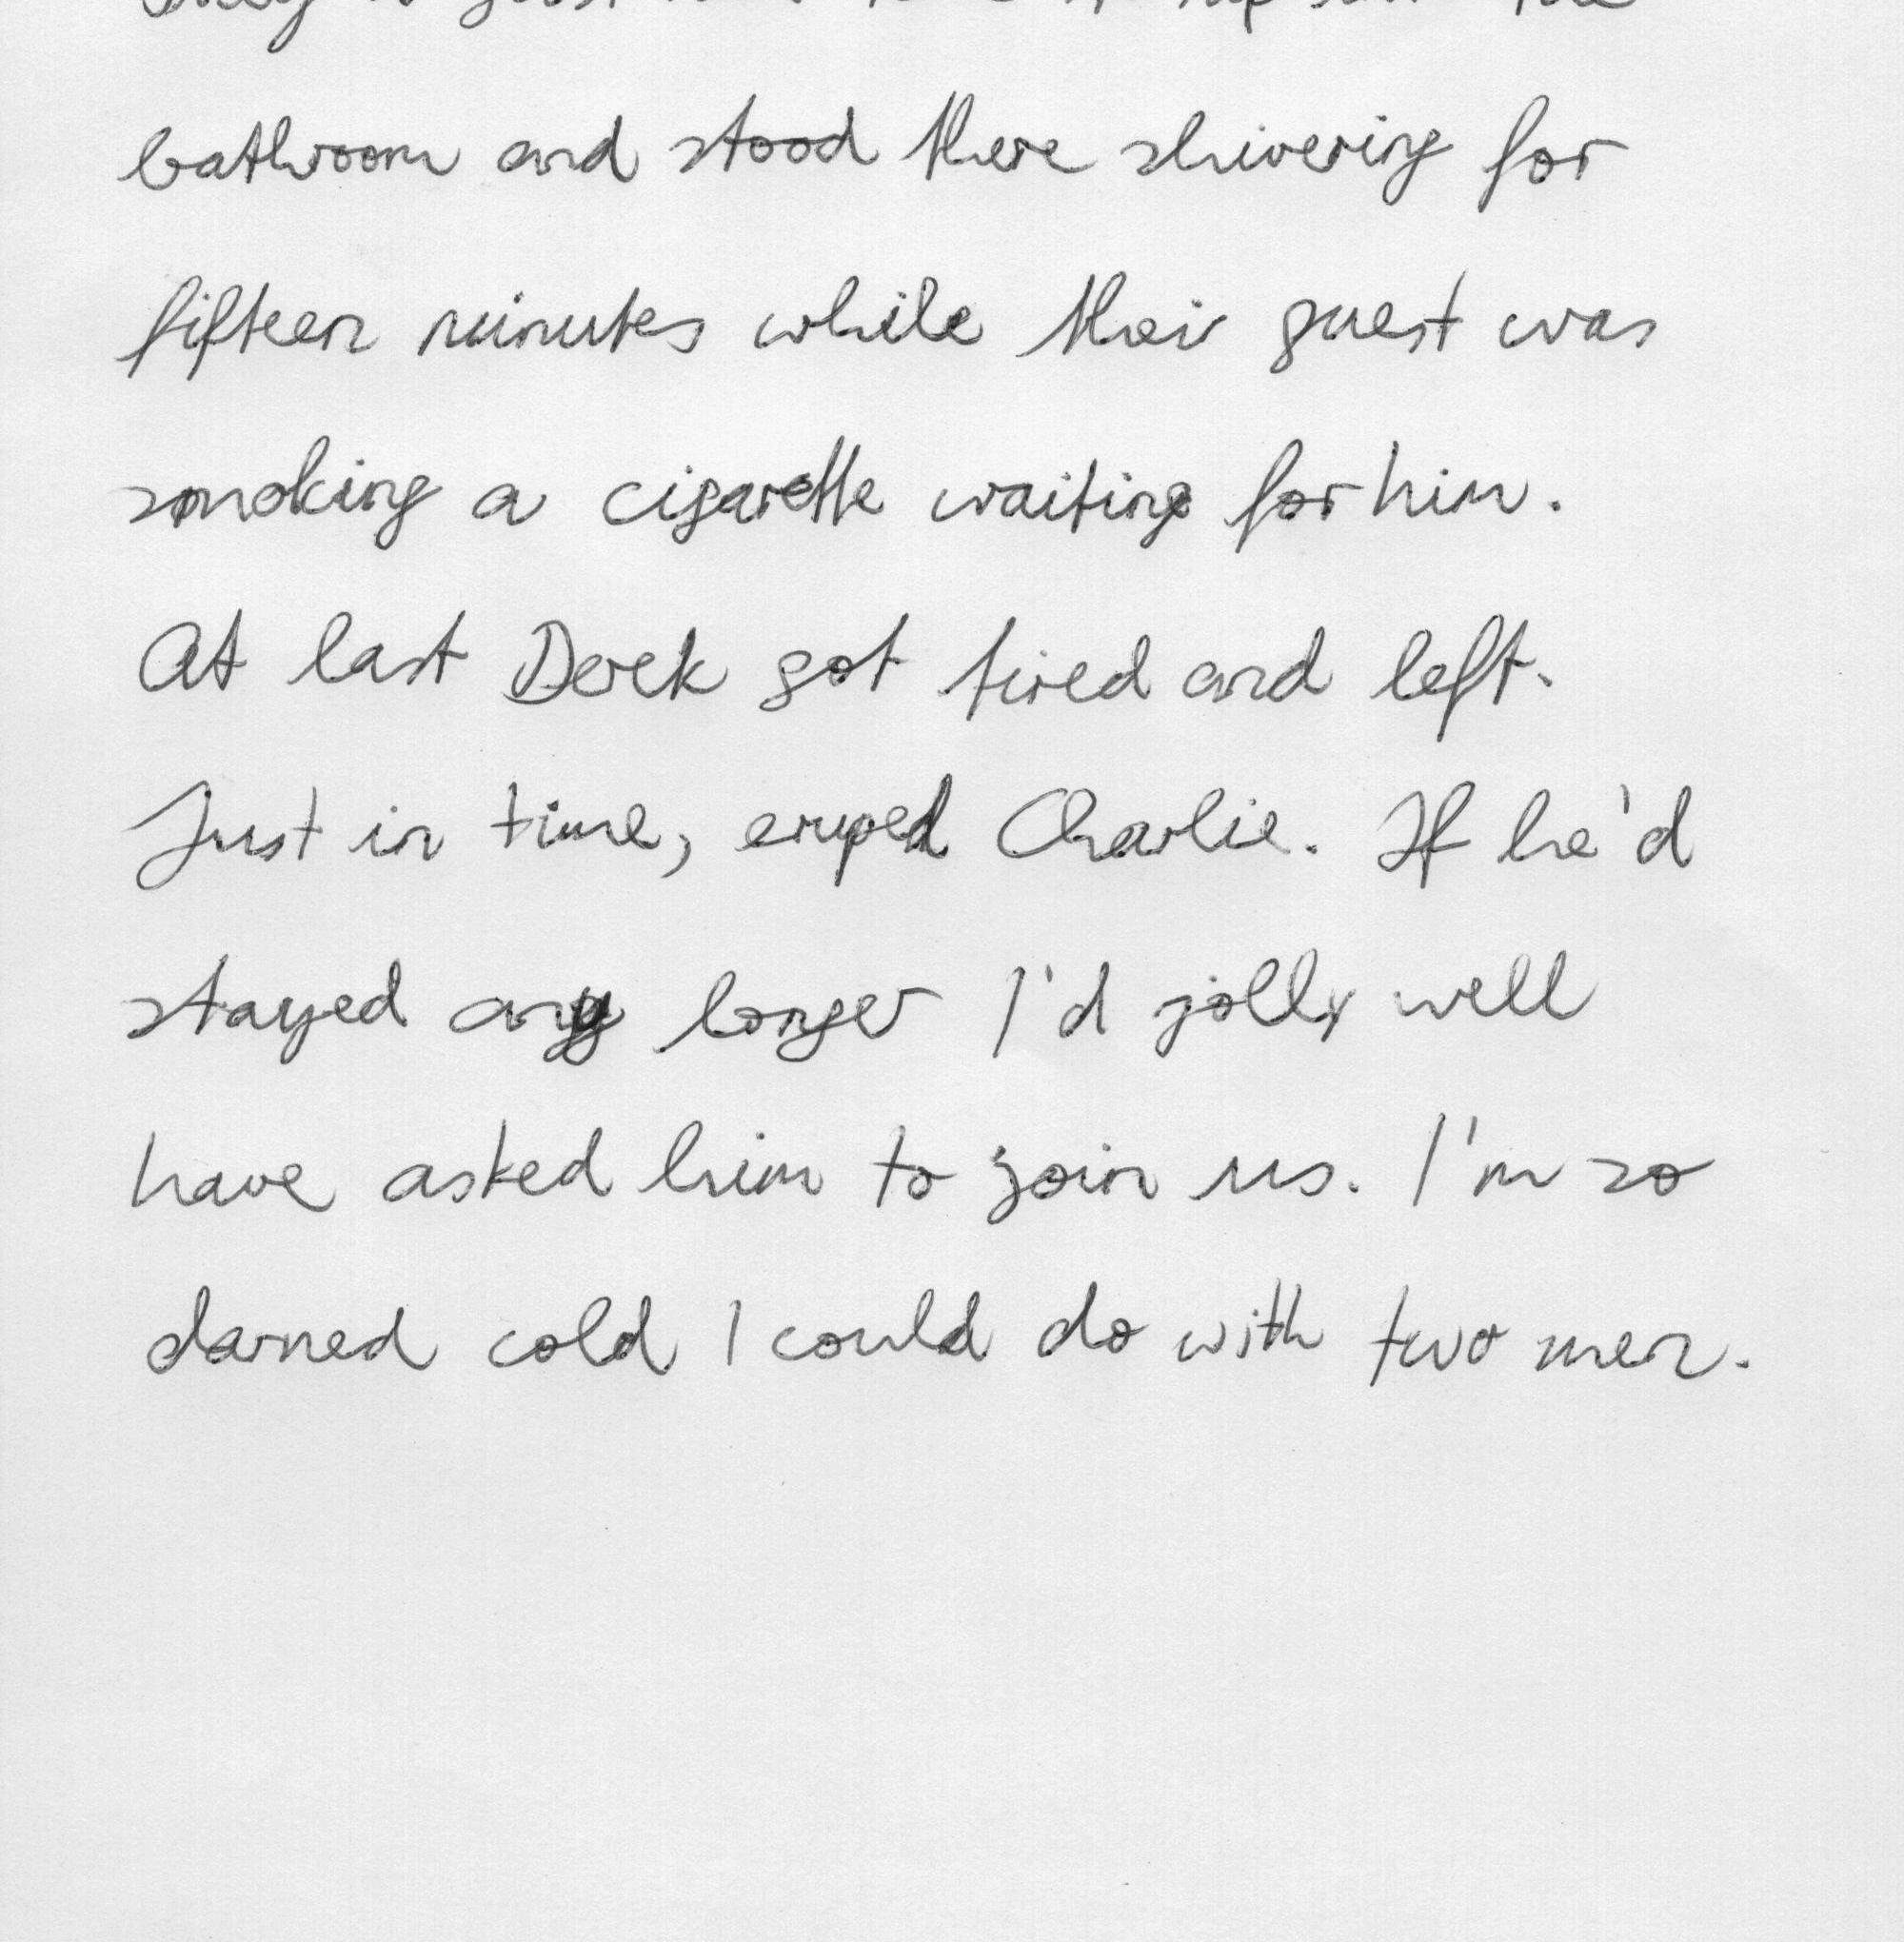 bathroom and stood there shivering for
fifteen minutes while their guest was
smoking a cigarette waiting for him.
At last Derek got tired and left.
Just in time, eruped Charlie. If he'd
stayed any longer I'd jolly well
have asked him to join us. I'm so
darned cold I could do with two men.